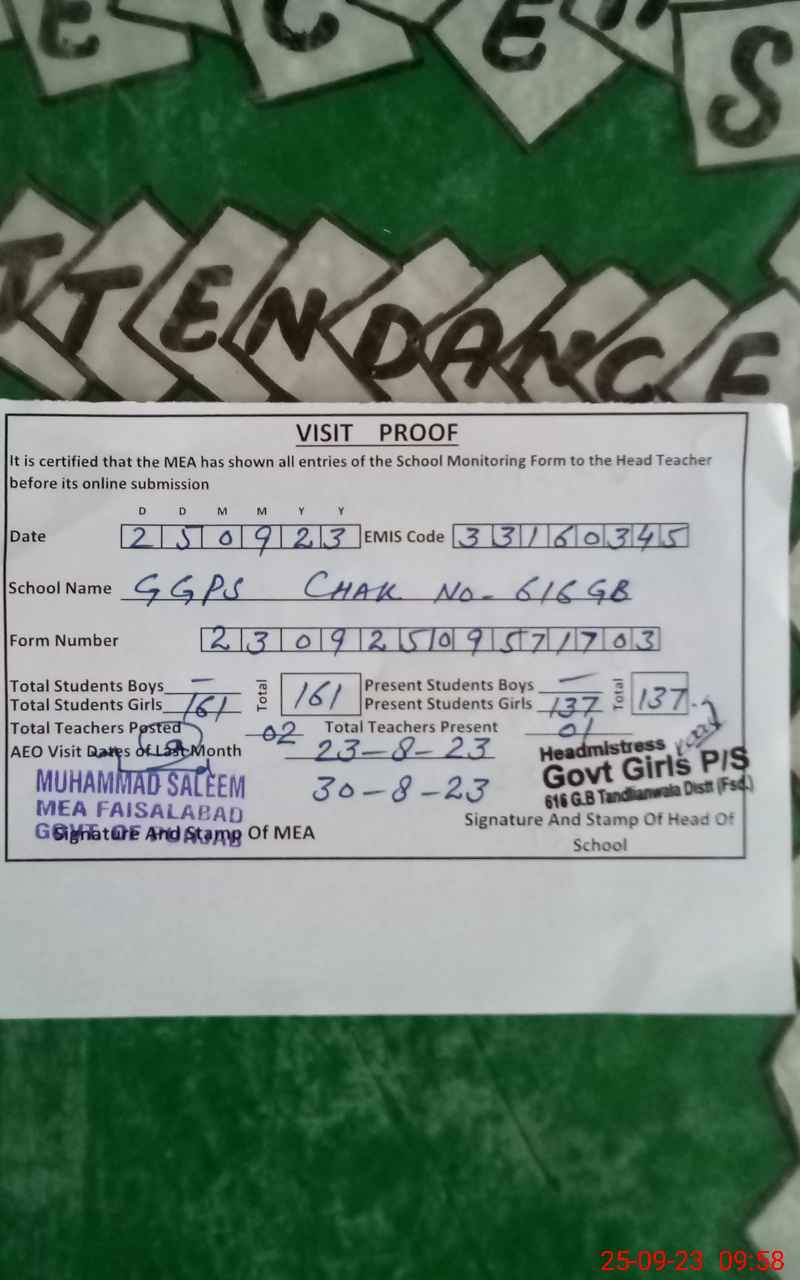 E C E S
TTENDANCE
VISIT PROOF
It is certified that the MEA has shown all entries of the School Monitoring Form to the Head Teacher
before its online submission
D D M M Y Y
Date 250923 EMIS Code 33160345
School Name GGPS CHAK NO- 616 GB
Form Number 23092509571703
Total Students Boys - Total 161 Present Students Boys - Total 137
Total Students Girls 161 Present Students Girls 137
Total Teachers Posted 02 Total Teachers Present 01
AEO Visit Dates of Last Month 23-8-23
30-8-23
MUHAMMAD SALEEM
MEA FAISALABAD
GOVT. OF PUNJAB
Signature And Stamp Of MEA
Headmistress
Govt Girls P/S
616 G.B Tandlianwala Distt (Fsd.)
Signature And Stamp Of Head Of
School
25-09-23 09:58